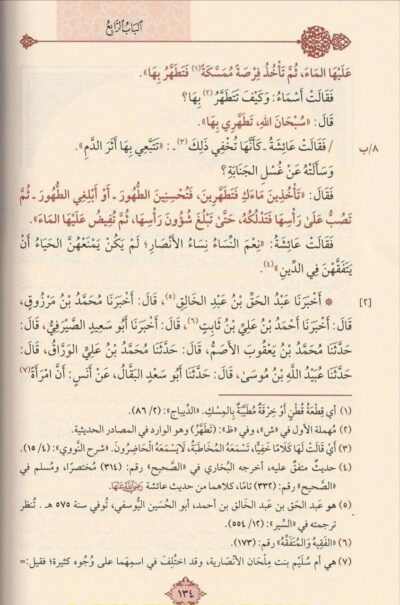 الباب الرابع
عَلَيْهَا المَاءَ، ثُمَّ تَأْخُذُ فِرْصَةً مُمَسَّكَةً(١) فَتَطَهَّرُ بِهَا».
فَقَالَتْ أَسْمَاءُ: وَكَيْفَ تَتَطَهَّرُ(٢) بِهَا؟
قَالَ: «سُبْحَانَ اللهِ، تَطَهَّرِي بِهَا».
٨/ب
/ فَقَالَتْ عَائِشَةُ ـ كَأَنَّهَا تُخْفِي ذَلِكَ(٣) ـ: «تَتَبَّعِي بِهَا أَثَرَ الدَّمِ».
وَسَأَلَتْهُ عَنْ غُسْلِ الجَنَابَةِ؟
فَقَالَ: «تَأْخُذِينَ مَاءَكِ فَتَطَهَّرِينَ، فَتُحْسِنِينَ الطُّهُورَ ـ أَوْ أَبْلِغِي الطُّهُورَ ـ ثُمَّ
تَصُبُّ عَلَى رَأْسِهَا فَتَدْلُكُهُ، حَتَّىٰ تَبْلُغَ شُؤُونَ رَأْسِهَا، ثُمَّ تُفِيضُ عَلَيْهَا المَاءَ».
فَقَالَتْ عَائِشَةُ: «نِعْمَ النِّسَاءُ نِسَاءُ الأَنْصَارِ؛ لَمْ يَكُنْ يَمْنَعُهُنَّ الحَيَاءُ أَنْ
يَتَفَقَّهْنَ فِي الدِّينِ»(٤).
[٢] * أَخْبَرَنَا عَبْدُ الحَقِّ بْنُ عَبْدِ الخَالِقِ(٥)، قَالَ: أَخْبَرَنَا مُحَمَّدُ بْنُ مَرْزُوقٍ،
قَالَ: أَخْبَرَنَا أَحْمَدُ بْنُ عَلِيِّ بْنِ ثَابِتٍ(٦)، قَالَ: أَخْبَرَنَا أَبُو سَعِيدٍ الصَّيْرَفِيُّ، قَالَ:
حَدَّثَنَا مُحَمَّدُ بْنُ يَعْقُوبَ الأَصَمُّ، قَالَ: حَدَّثَنَا مُحَمَّدُ بْنُ عَلِيٍّ الوَرَّاقُ، قَالَ:
حَدَّثَنَا عُبَيْدُ اللَّهِ بْنُ مُوسَىٰ، قَالَ: حَدَّثَنَا أَبُو سَعْدٍ البَقَّالُ، عَنْ أَنَسٍ: أَنَّ امْرَأَةً(٧)
(١) أي قِطعَةُ قُطنٍ أو خِرْقَةٌ مُطيَّبَةٌ بالمِسكِ. «الدِّيباج»: (٢/ ٨٦).
(٢) مُهملة الأول في «ش»، وفي «ظ»: (تَطَهَّرُ) وهو الوارد في المصادر الحديثية.
(٣) أَيْ قَالَتْ لَهَا كَلَامًا خَفِيًّا، تَسْمَعُهُ المُخَاطَبَةُ، لَا يَسْمَعهُ الْحَاضِرُونَ. «شرح النَّووي»: (٤/ ١٥).
(٤) حديثٌ متفقٌ عليه، أخرجه البُخاري في «الصَّحيح» رقم: (٣١٤) مُختصرًا، ومُسلم في
«الصَّحيح» رقم: (٣٣٢) تامًا، كلاهما من حديث عائشة رضي الله عنها.
(٥) هو عبد الحق بن عبد الخالق بن أحمد، أبو الحُسين اليُوسفي، تُوفي سنة ٥٧٥ هـ. تُنظر
ترجمته في «السِّير»: (١٢/ ٥٥٤).
(٦) «الفَقِيه والمُتَفَقِّه» رقم: (١٧٣).
(٧) هي أم سُلَيْم بنت مِلْحَان الأنْصَارية، وقد اختُلِفَ في اسمِهَا على وُجوه كثيرة؛ فقيل:=
١٣٤